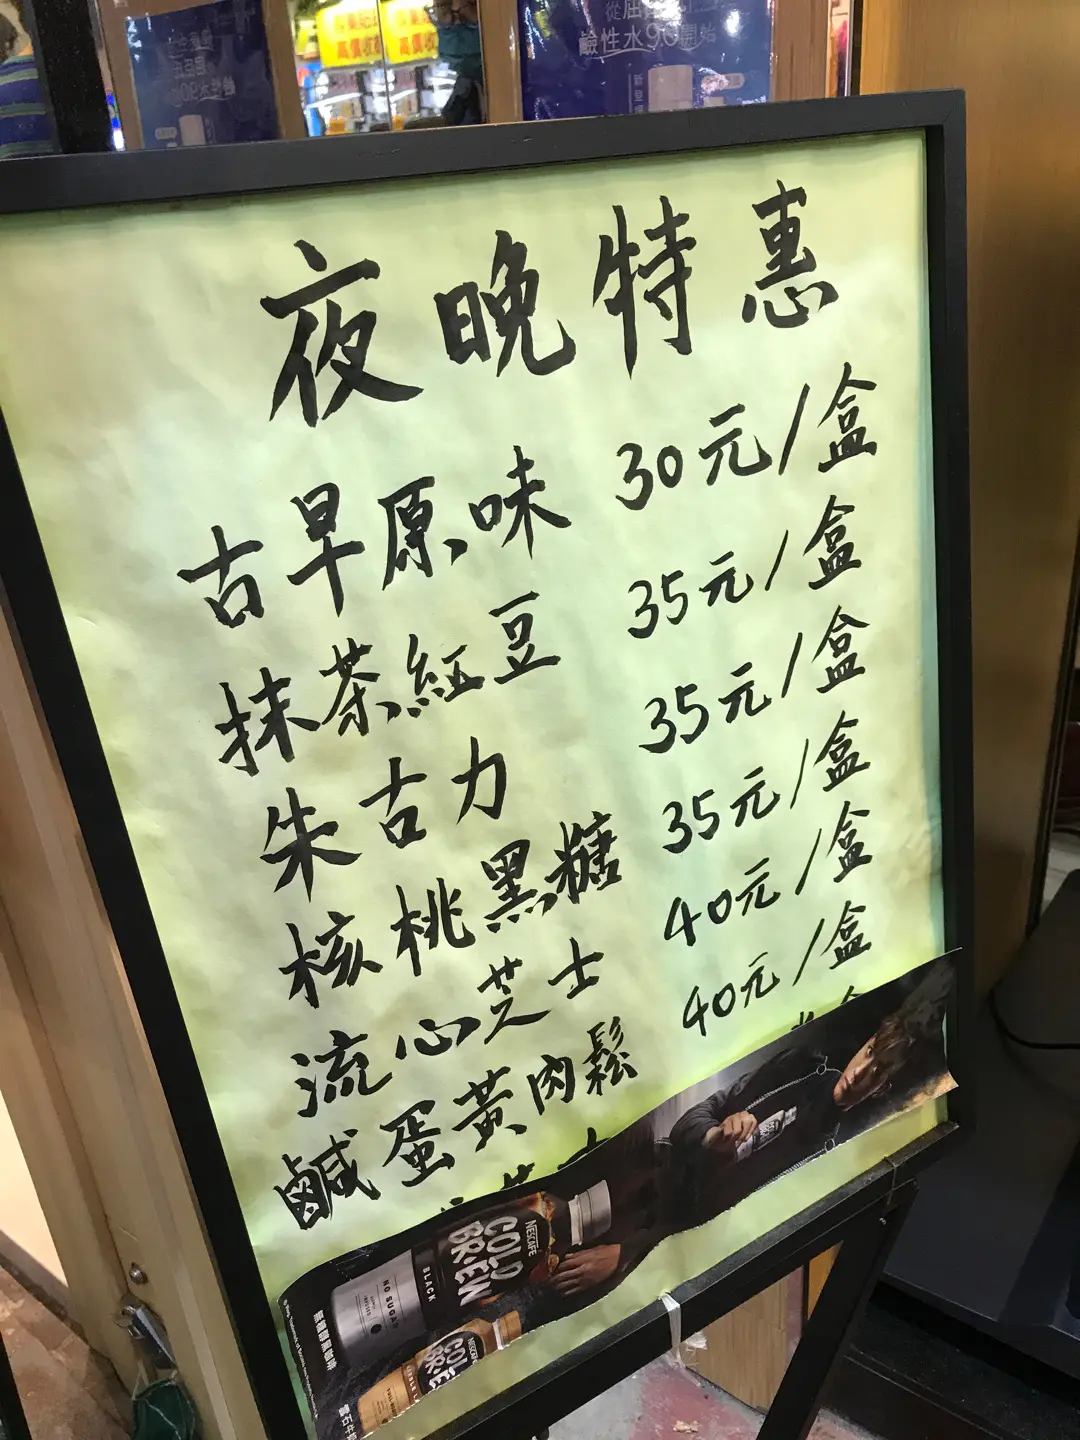 高價收
鹼性水9.0開始
夜晚特惠
古早原味 30元/盒
抹茶紅豆 35元/盒
朱古力 35元/盒
核桃黑糖 35元/盒
流心芝士 40元/盒
鹹蛋黃肉鬆 40元/盒
NESCAFE
COLD
BREW
BLACK
NO SUGAR
無糖醇黑咖啡
NESCAFE